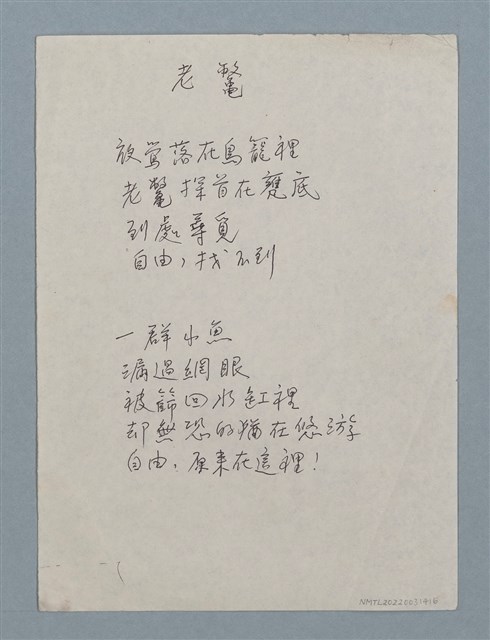 老鱉
放鶯落在鳥籠裡
老鱉探首在甕底
到處尋覓
自由，找不到
一群小魚
漏過網眼
被篩回水缸裡
却無恐的猶在悠游
自由，原來在這裡！
NMTL20220031416